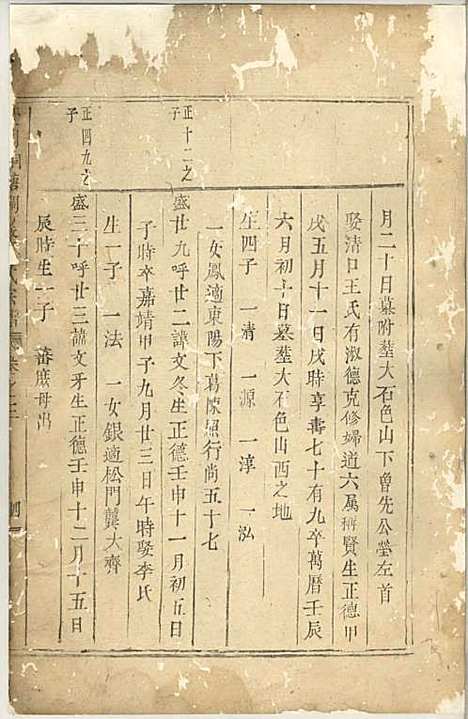 月二十日墓附塟大石色山下曾先公塋左首
娶清口王氏有淑德克修婦道六属稱賢生正德甲
戌五月十一日戌時享壽七十有九卒萬曆壬辰
六月初十日墓塟大石色山西之地
生四子 一清 一源 一淳 一泓
一女鳳適東陽下葛陳 行尚五十七
正十二之子
盛廿九呼廿二諱文冬生正德壬申十一月初五日
子時卒嘉靖甲子九月廿三日午時娶李氏
生一子 一法 一女銀適松門龔大齊
正四九之子
盛三十呼廿三諱文牙生正德壬申十二月十五日
辰時生一子 濤庶母出